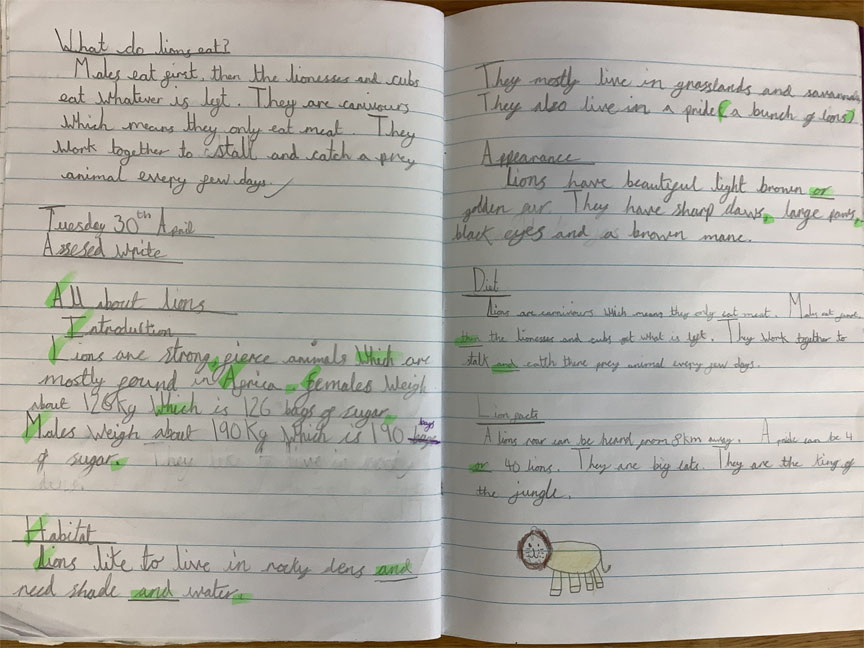 What do lions eat?
Males eat first, then the lionesses and cubs
eat whatever is left. They are canivours
which means they only eat meat. They
work together to stall and catch a prey
animal every few days.
Tuesday 30th April
Assesed write
All about lions
Introduction
Lions are strong, fierce animals which are
mostly found in Africa. females weigh
about 126kg which is 126 bags of sugar.
Males weigh about 190kg which is 190 bags
of sugar. They like to live in rocky
dens.
Habitat
Lions like to live in rocky dens and
need shade and water.
They mostly live in grasslands and savannah
They also live in a pride (a bunch of lions)
Appearance
Lions have beautiful light brown or
golden air. They have sharp claws, large paws,
black eyes and a brown mane.
Diet
Lions are carnivours which means they only eat meat. Males eat
then the lionesses and cubs eat what is left. They work together to
stalk and catch there prey animal every few days.
Lion facts
A lions roar can be heard from 8km away. A pride can be 4
or 40 lions. They are big cats. They are the king of
the jungle.